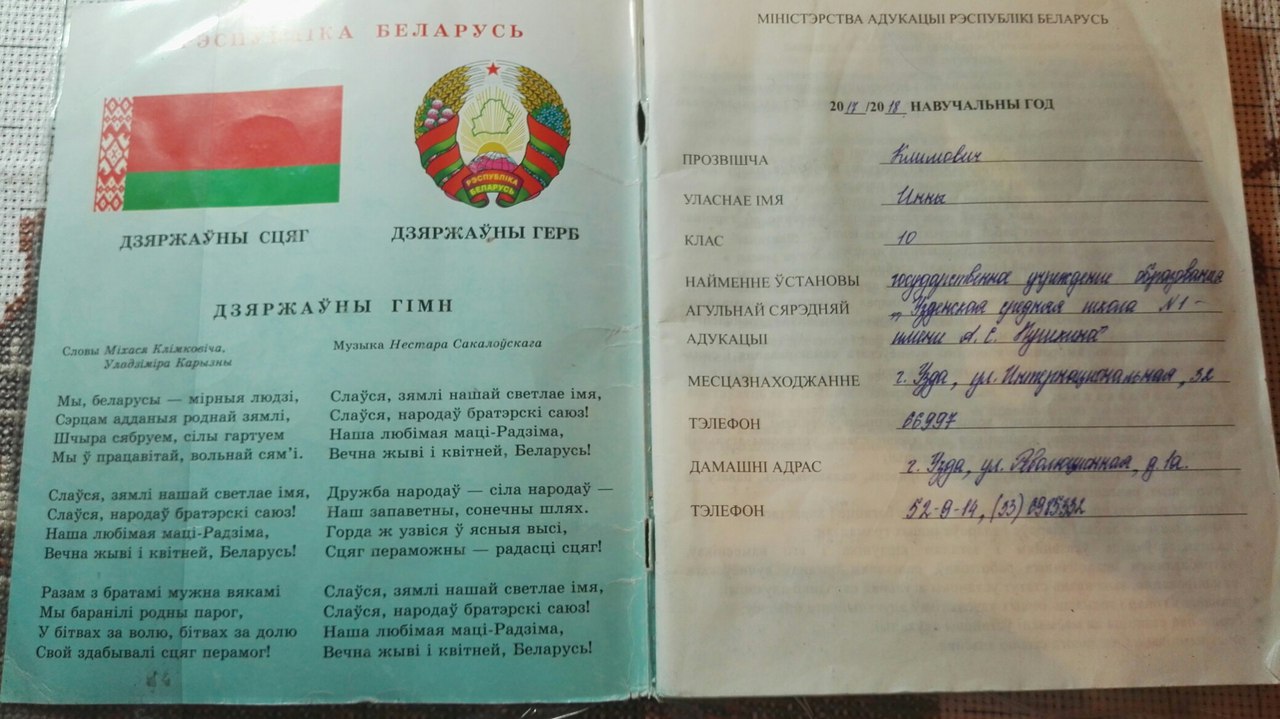 РЭСПУБЛІКА БЕЛАРУСЬ
РЭСПУБЛІКА
БЕЛАРУСЬ
ДЗЯРЖАЎНЫ СЦЯГ
ДЗЯРЖАЎНЫ ГЕРБ
ДЗЯРЖАЎНЫ ГІМН
Словы Міхася Клімковіча,
Уладзіміра Карызны
Музыка Нестара Сакалоўскага
Мы, беларусы — мірныя людзі,
Сэрцам адданыя роднай зямлі,
Шчыра сябруем, сілы гартуем
Мы ў працавітай, вольнай сям'і.
Слаўся, зямлі нашай светлае імя,
Слаўся, народаў братэрскі саюз!
Наша любімая маці-Радзіма,
Вечна жыві і квітней, Беларусь!
Разам з братамі мужна вякамі
Мы баранілі родны парог,
У бітвах за волю, бітвах за долю
Свой здабывалі сцяг перамог!
Слаўся, зямлі нашай светлае імя,
Слаўся, народаў братэрскі саюз!
Наша любімая маці-Радзіма,
Вечна жыві і квітней, Беларусь!
Дружба народаў — сіла народаў —
Наш запаветны, сонечны шлях.
Горда ж узвіся ў ясныя высі,
Сцяг пераможны — радасці сцяг!
Слаўся, зямлі нашай светлае імя,
Слаўся, народаў братэрскі саюз!
Наша любімая маці-Радзіма,
Вечна жыві і квітней, Беларусь!
МІНІСТЭРСТВА АДУКАЦЫІ РЭСПУБЛІКІ БЕЛАРУСЬ
2017/2018 НАВУЧАЛЬНЫ ГОД
ПРОЗВІШЧА Климович
УЛАСНАЕ ІМЯ Инны
КЛАС 10
НАЙМЕННЕ ЎСТАНОВЫ государственное учреждение образования
АГУЛЬНАЙ СЯРЭДНЯЙ „Узденская средняя школа №1
АДУКАЦЫІ имени А. С. Пушкина"
МЕСЦАЗНАХОДЖАННЕ г. Узда, ул. Интернациональная, 32
ТЭЛЕФОН 66997
ДАМАШНІ АДРАС г. Узда, ул. Революционная, д. 1а.
ТЭЛЕФОН 52-9-14, (33) 6985332